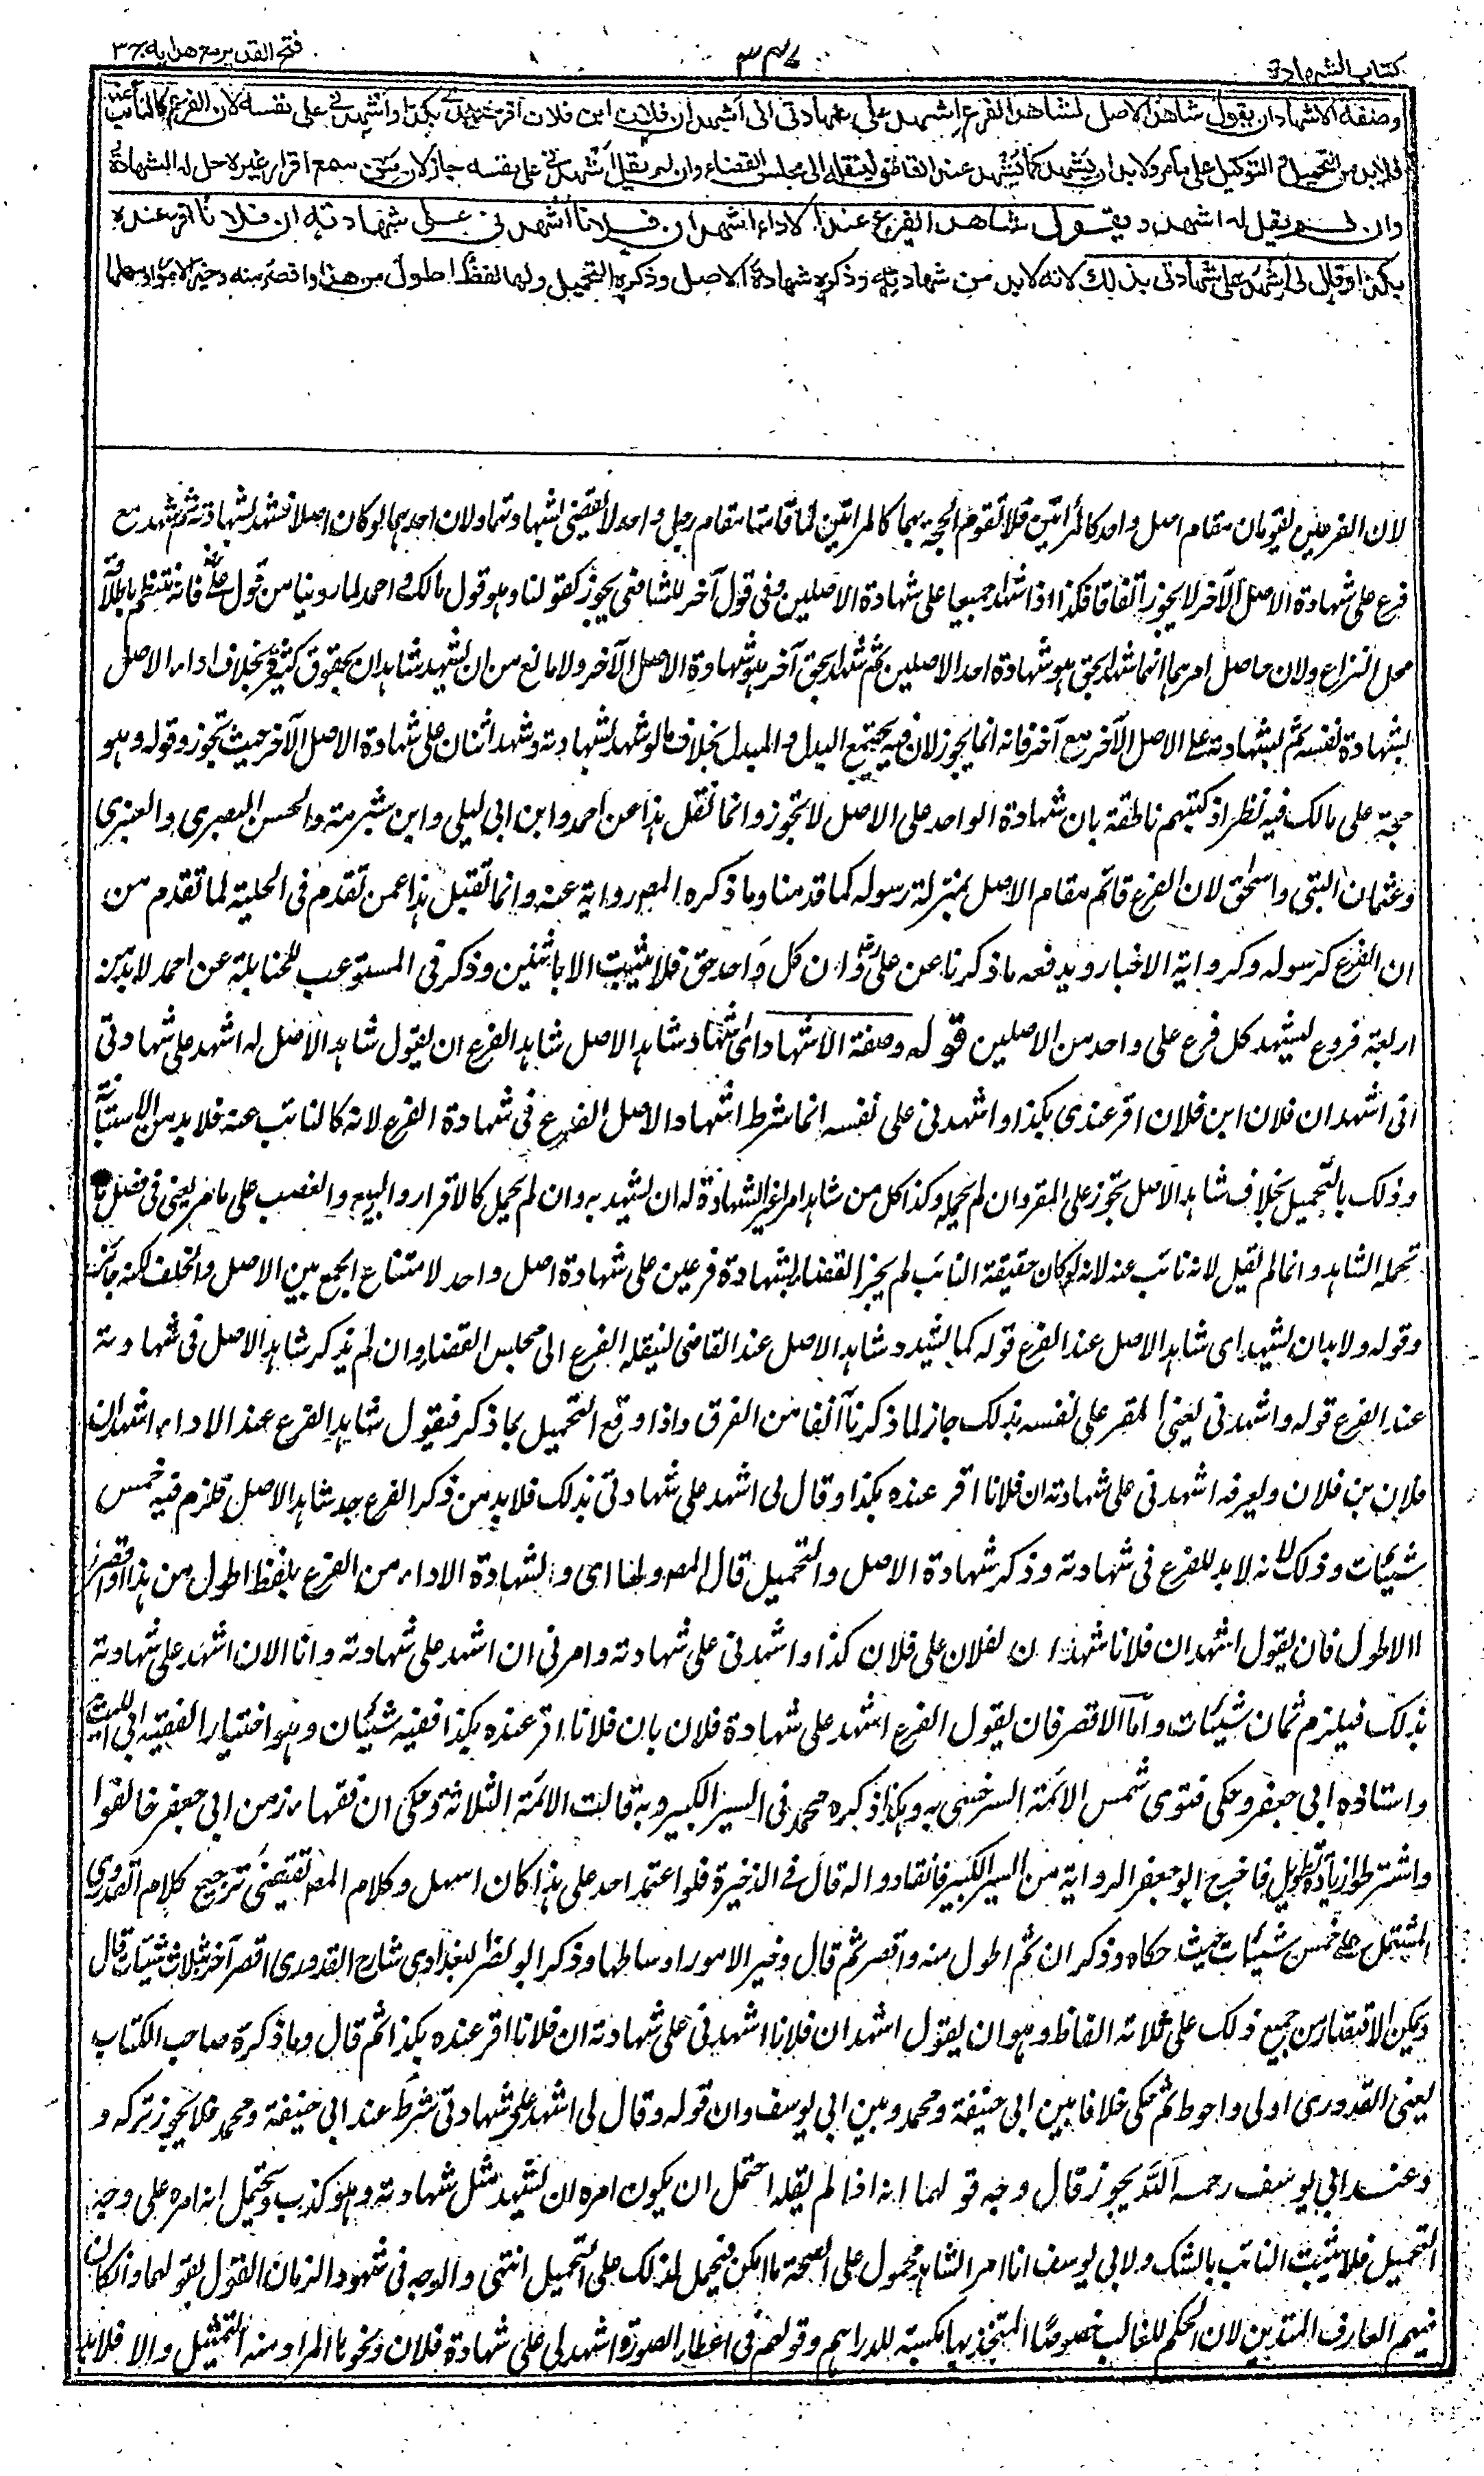 كتاب الشهادة ٣٤٧ فتح القدير مع هدايه ج٣
وصفة الاشهاد ان يقول شاهد الاصل لشاهد الفرع اشهد على شهادتى انى اشهد ان فلان ابن فلان اقر عندى بكذا واشهدنى على نفسه لان الفرع كالنائب عنه
فلابد من التحميل والتوكيل على ما مر ولابد ان يشهد كما يشهد عند القاضى لينقله الى مجلس القضاء وان لم يقل اشهدنى على نفسه جاز لان من سمع اقرار غيره حل له الشهادة
وان لم يقل له اشهد ويقول شاهد الفرع عند الاداء اشهد ان فلانا اشهدنى على شهادته ان فلانا اقر عنده
بكذا وقال لى اشهد على شهادتى بذلك لانه لابد من شهادته وذكره شهادة الاصل وذكره التحميل ولها لفظ اطول من هذا واقصر منه وخير الامور اوسطها
لان الفرعين يقومان مقام اصل واحد كالمرأتين فلا تقوم الحجة بهما كالمرأتين لما قامتا مقام رجل واحد لا يقضى بشهادتهما ولان احدهما لو كان اصلا فشهد بشهادته ثم شهد مع
فرع على شهادة الاصل الآخر لا يجوز اتفاقا فكذا اذا شهدا جميعا على شهادة الاصلين وفى قول آخر للشافعى يجوز كقولنا وهو قول مالك واحمد لما روينا من قول على فانه ينتظم باطلاقه
محل النزاع ولان حاصل امرهما انهما شهدا بحق هو شهادة احد الاصلين ثم شهدا بحق آخر هو شهادة الاصل الآخر ولا مانع من ان يشهد شاهدان بحقوق كثيرة بخلاف اداء الاصل
بشهادة نفسه ثم بشهادته على الاصل الآخر مع آخر فانه انما يجوز لان فيه يجتمع البدل والمبدل بخلاف ما لو شهد بشهادته وشهد اثنان على شهادة الاصل الآخر حيث تجوز وقوله وهو
حجة على مالك فيه نظر اذ كتبهم ناطقة بان شهادة الواحد على الاصل لا تجوز وانما نقل هذا عن احمد وابن ابى ليلى وابن شبرمة والحسن البصرى والعنبرى
وعثمان البتى واسحق لان الفرع قائم مقام الاصل بمنزلة رسوله كما قدمنا وما ذكره المصـ رواية عنه وانما تقبل هذا عمن تقدم فى الحلية لما تقدم من
ان الفرع كرسوله وكرواية الاخبار ويدفعه ما ذكرنا عن على وان كل واحد حق فلا يثبت الا باثنين وذكر فى المستوعب للحنابلة عن احمد لابد من
اربعة فروع ليشهد كل فرع على واحد من الاصلين قوله وصفة الاشهاد اى اشهاد شاهد الاصل شاهد الفرع ان يقول شاهد الاصل له اشهد على شهادتى
انى اشهد ان فلان ابن فلان اقر عندى بكذا واشهدنى على نفسه انما شرط اشهاد الاصل الفرع فى شهادة الفرع لانه كالنائب عنه فلابد من الاستنابة
وذلك بالتحميل بخلاف شاهد الاصل تجوز على المقر وان لم يحمله وكذا كل من شاهد امرا غير الشهادة له ان يشهد به وان لم يحمل كالاقرار والبيع والغصب على ما مر يعنى فى فصل ما
تحمله الشاهد وانما لم يقل لانه نائب عنه لانه لو كان حقيقة النائب لم يجز القضاء بشهادة فرعين على شهادة اصل واحد لامتناع الجمع بين الاصل والخلف لكنه جائز
وقوله ولابد ان يشهد اى شاهد الاصل عند الفرع قوله كما يشهد شاهد الاصل عند القاضى لينقله الفرع الى مجلس القضاء وان لم يذكر شاهد الاصل فى شهادته
عند الفرع قوله واشهدنى يعنى المقر على نفسه بذلك جاز لما ذكرنا آنفا من الفرق واذا وقع التحميل بما ذكر فيقول شاهد الفرع عند الاداء اشهد ان
فلان بن فلان ويعرفه اشهدنى على شهادته ان فلانا اقر عنده بكذا وقال لى اشهد على شهادتى بذلك فلابد من ذكر الفرع جد شاهد الاصل فلزم فيه خمس
شينات وذلك لانه لابد للفرع فى شهادته وذكر شهادة الاصل والتحميل قال المصـ ولها اى ولشهادة الاداء من الفرع بلفظ اطول من هذا واقصر
اما الاطول فان يقول اشهد ان فلانا شهد ان لفلان على فلان كذا واشهدنى على شهادته وامرنى ان اشهد على شهادته وانا الان اشهد على شهادته
بذلك فيلزم ثمان شينات واما الاقصر فان يقول الفرع اشهد على شهادة فلان بان فلانا اقر عنده بكذا ففيه شينان وهو اختيار الفقيه ابى الليث
واستاذه ابى جعفر وحكى فتوى شمس الائمة السرخسى به وهكذا ذكره محمد فى السير الكبير وبه قالت الائمة الثلاثة وحكى ان فقهاء زمن ابى جعفر خالفوا
واشترطوا زيادة تطويل فاخرج ابو جعفر الرواية من السير الكبير فانقادوا له قال فى الذخيرة فلو اعتمد احد على هذا كان اسهل وكلام المصـ تقتضى ترجيح كلام القدورى
المشتمل على خمس شينات حيث حكاه وذكر ان ثم اطول منه واقصر ثم قال وخير الامور اوساطها وذكر ابو نصر البغدادى شارح القدورى اقصر آخر بثلاث شينات قال
ويمكن الاقتصار من جميع ذلك على ثلاثة الفاظ وهو ان يقول اشهد ان فلانا اشهدنى على شهادته ان فلانا اقر عنده بكذا ثم قال وما ذكره صاحب الكتاب
يعنى القدورى اولى واحوط ثم حكى خلافا بين ابى حنيفة ومحمد وبين ابى يوسف وان قوله وقال لى اشهد على شهادتى شرط عند ابى حنيفة ومحمد فلا يجوز تركه و
وعند ابى يوسف رحمه الله يجوز قال وجه قولهما انه اذا لم يقله احتمل ان يكون امره ان يشهد مثل شهادته وهو كذب ويحتمل انه امره على وجه
التحميل فلا يثبت النائب بالشك ولابى يوسف ان امر الشاهد محمول على الصحة ما امكن فيحمل لذلك على التحميل انتهى والوجه فى شهود الزمان القول بقولهما وان كان
فيهم العارف المتدين لان الحكم للغالب خصوصا المتخذ بها مكسبة للدراهم وقولهم فى اعطاء الصورة اشهد لى على شهادة فلان ونحو ما المراد منه التمثيل والا فلابد